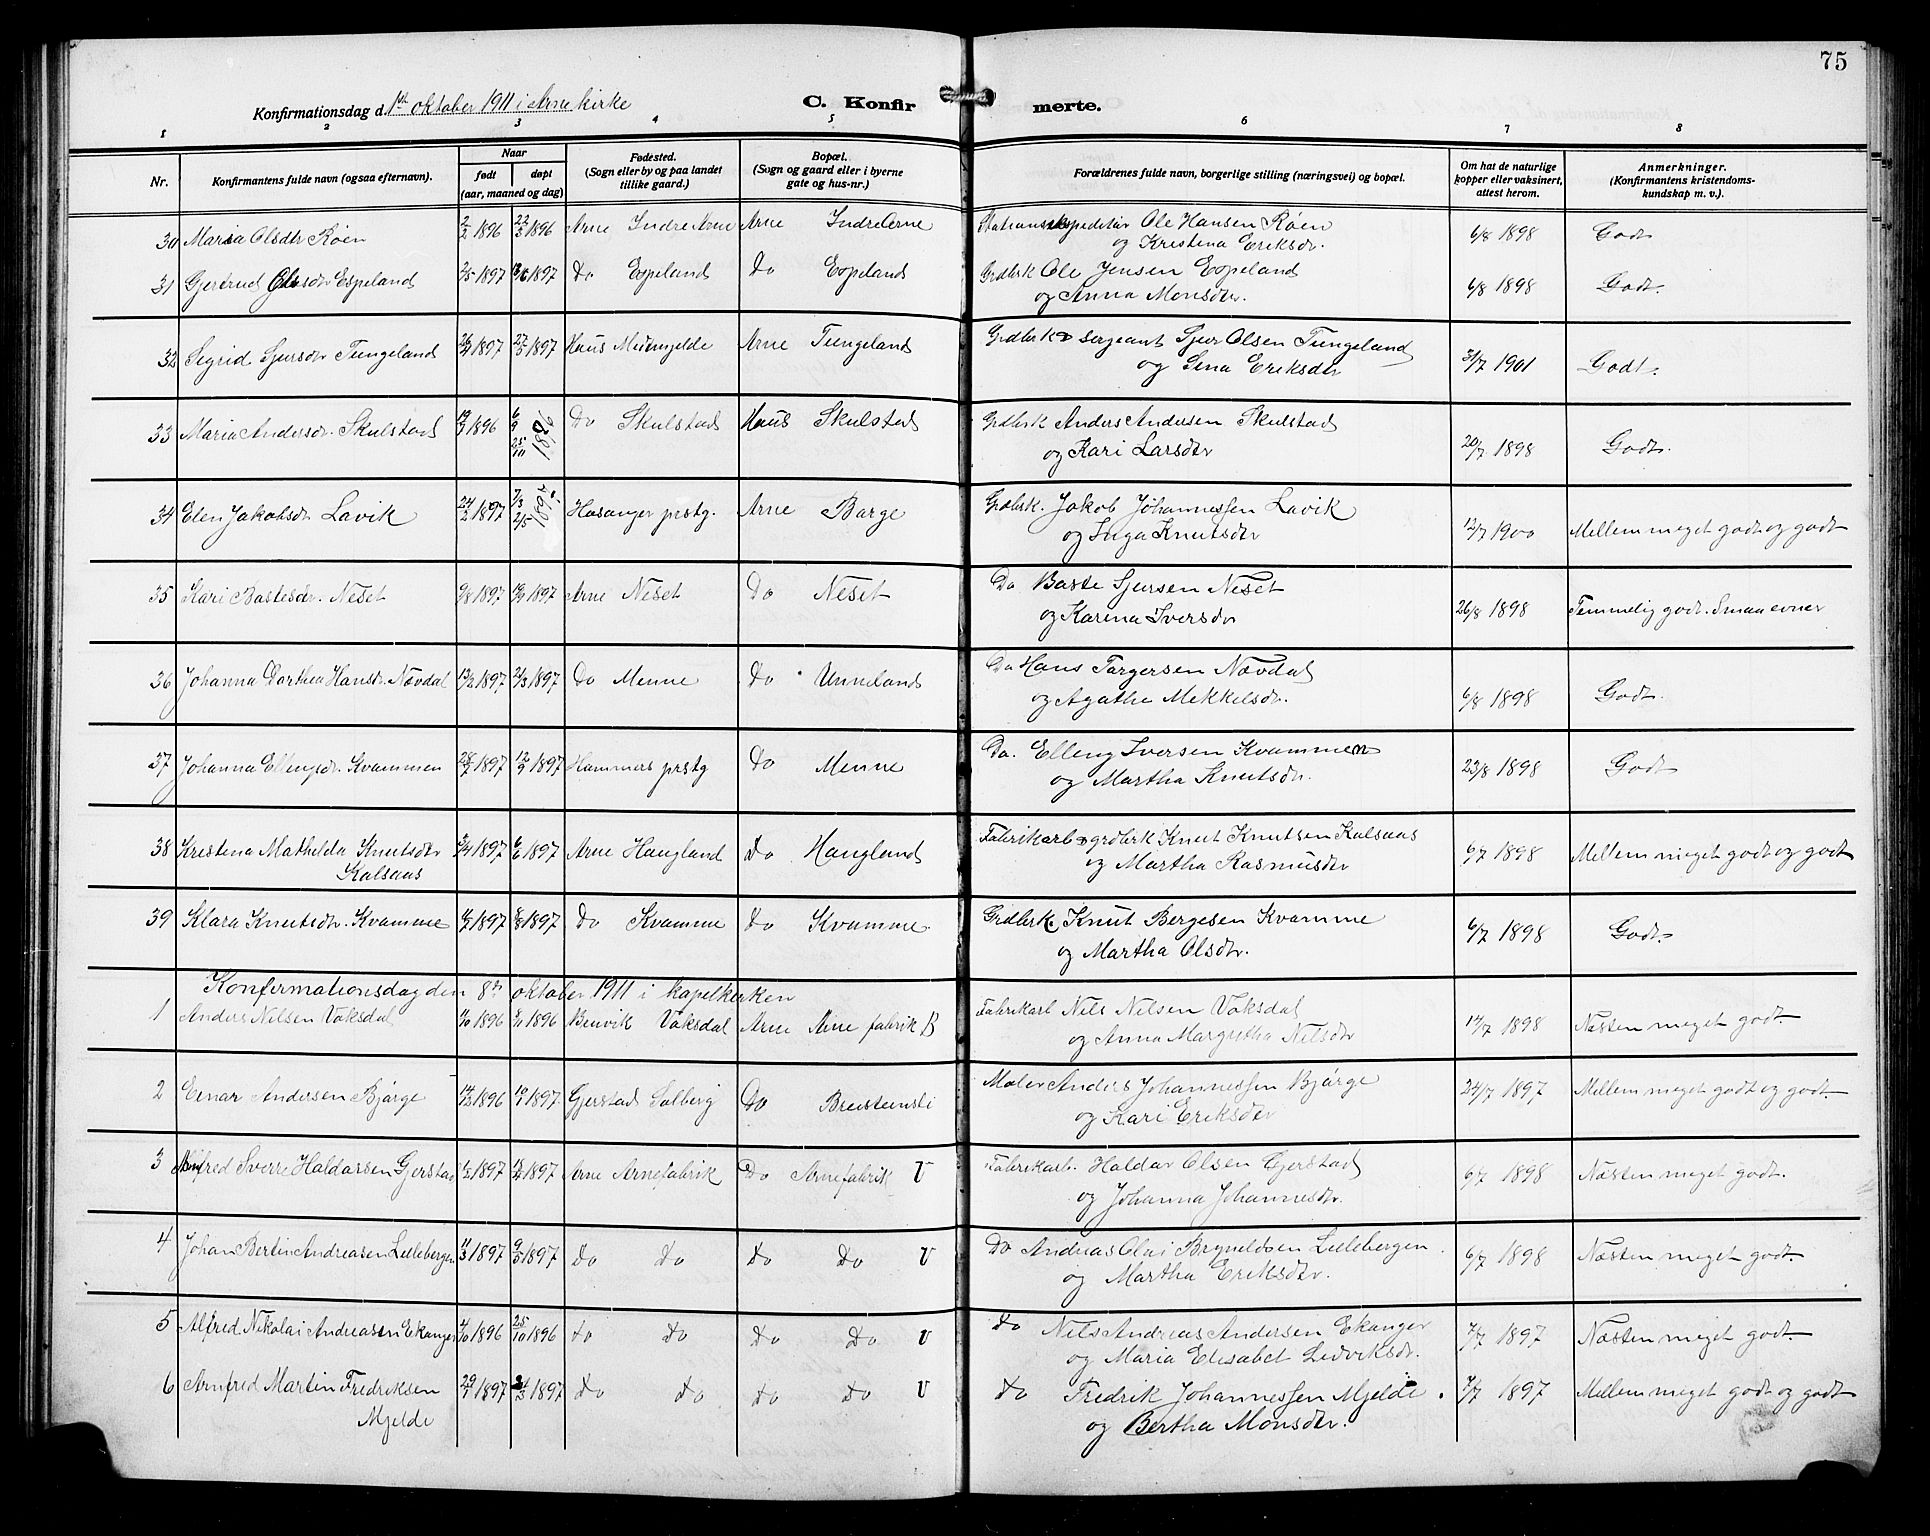 75
Konfirmationsdag d. 1ste oktober 1911 i Arne kirke
C. Konfir merte.
1 2 3 4 5 6 7 8
Nr.
Konfirmantens fulde navn (ogsaa efternavn).
Naar
født døpt
(aar, maaned og dag)
Fødested.
(Sogn eller by og paa landet
tillike gaard.)
Bopæl.
(Sogn og gaard eller i byerne
gate og hus-nr.)
Forældrenes fulde navn, borgerlige stilling (næringsvei) og bopæl.
Om hat de naturlige
kopper eller vaksinert,
attest herom.
Anmerkninger.
(Konfirmantens kristendoms-
kundskap m. v.).
30 Maria Olsdtr Røen 2/2 1896 22/3 1896 Arne Indre Arne Arne Indre Arne Stationsekspeditør Ole Hansen Røen 6/8 1898 Godt
og Kristina Eriksdr.
31 Gjertrud Olsdtr Espeland 1897 1897 Do Espeland Do Espeland Grdbrk Ole Jensen Espeland 6/8 1898 Godt.
og Anna Monsdtr.
32 Sigrid Sjursdtr Tungeland 1897 1897 Haus Midtmjelde Arne Tungeland Grdbrk & sergeant Sjur Olsen Tungeland 31/7 1901 Godt.
og Sina Eriksdtr
33 Maria Andersdr. Skulstad 1896 6/9 25/10 1896 Do Skulstad Haus Skulstad Grdbrk Anders Andersen Skulstad 20/7 1898 Godt.
og Kari Larsdtr
34 Elen Jakobsdr Lavik 24/2 1897 7/3 2/5 1897 Hosanger prstg. Arne Borge Grdbrk. Jakob Johannessen Lavik 12/7 1900 Mellem meget godt og godt
og Inga Knutsdtr
35 Kari Bastesdtr. Neset 9/8 1897 1897 Arne Neset Do Neset Do Baste Sjursen Neset 26/8 1898 Temmelig godt. Smaa evner
og Karina Iversdtr
36 Johanna Dorthea Hansdr. Nævdal 1897 21/3 1897 Do Menne Do Unneland Do Hans Torgersen Nævdal 6/8 1898 Godt.
og Agathe Mikkelsdr.
37 Johanna Ellingsdr. Kvammen 1897 12/9 1897 Hammers prstg Do Menne Do. Elling Iversen Kvammen 23/8 1898 Godt
og Martha Knutsdr.
38 Kristina Mathilda Knutsdtr 1897 6/6 1897 Arne Haugland Do Haugland Fabrikarb & grdbrk Knut Knutsen Kalsaas 6/7 1898 Mellem meget godt og godt
Kalsaas og Martha Rasmusdtr
39 Klara Knutsdtr. Kvamme 1897 1897 Do Kvamme Do Kvamme. Grdbrk Knut Bergesen Kvamme 6/7 1898 Godt.
og Martha Olsdtr.
Konfirmationsdag den 8de oktober 1911 i kapelkirken
1 Anders Nilsen Vaksdal 1896 1896 Bruvik Vaksdal Arne Arne fabrik B Fabrikarb Nils Nilsen Vaksdal 14/7 1898 Næsten meget godt.
og Anna Margretha Nilsdtr
2 Einar Andersen Bjørge 1896 1897 Gjerstad Solberg Do Breisteinsli Maler Anders Johannessen Bjørge 24/7 1897 Mellem meget godt og godt.
og Kari Eriksdtr
3 Alfred Sverre Haldorsen Gjerstad 1897 1897 Arne Arnefabrik Do Arnefabrik U Fabrikarb. Haldor Olsen Gjerstad 6/7 1898 Næsten meget godt.
og Johanna Johannesdtr.
4 Johan Bertin Andreasen Lillebergen 11/3 1897 9/5 1897 Do Do Do Do U Do Andreas Olai Brynildsen Lillebergen 6/7 1898 Næsten meget godt.
og Martha Eriksdtr.
5 Alfred Nikolai Andreasen Ekanger 4/10 1896 25/10 1896 do Do Do Do U Do Nils Andreas Andersen Ekanger 7/7 1897 Næsten meget godt
og Maria Elisabet Ludviksdr.
6 Arnfred Martin Fredriksen 29/1 1897 1897 Do Do Do Do U Do Fredrik Johannessen Mjelde 7/7 1897 Mellem meget godt og godt
Mjelde og Bertha Monsdtr.